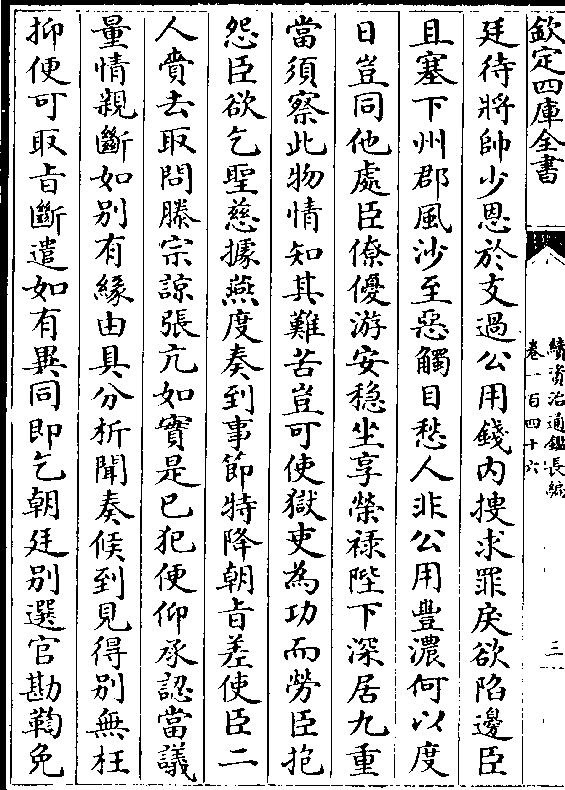 欽定四庫全書
續資治通鑑長編
卷一百四十六
三
廷待將帥少恩於支過公用錢内搜求罪戾欲陷邊臣
且塞下州郡風沙至惡觸目愁人非公用豐濃何以度
日豈同他處臣僚優游安穏坐享榮禄陛下深居九重
當須察此物情知其難苦豈可使獄吏為功而勞臣抱
怨臣欲乞聖慈據燕度奏到事節特降朝㫖差使臣二
人賫去取問滕宗諒張亢如實是已犯便仰承認當議
量情親斷如别有緣由具分析聞奏候到見得别無枉
抑便可取㫖斷遣如有異同即乞朝廷别選官勘鞫免